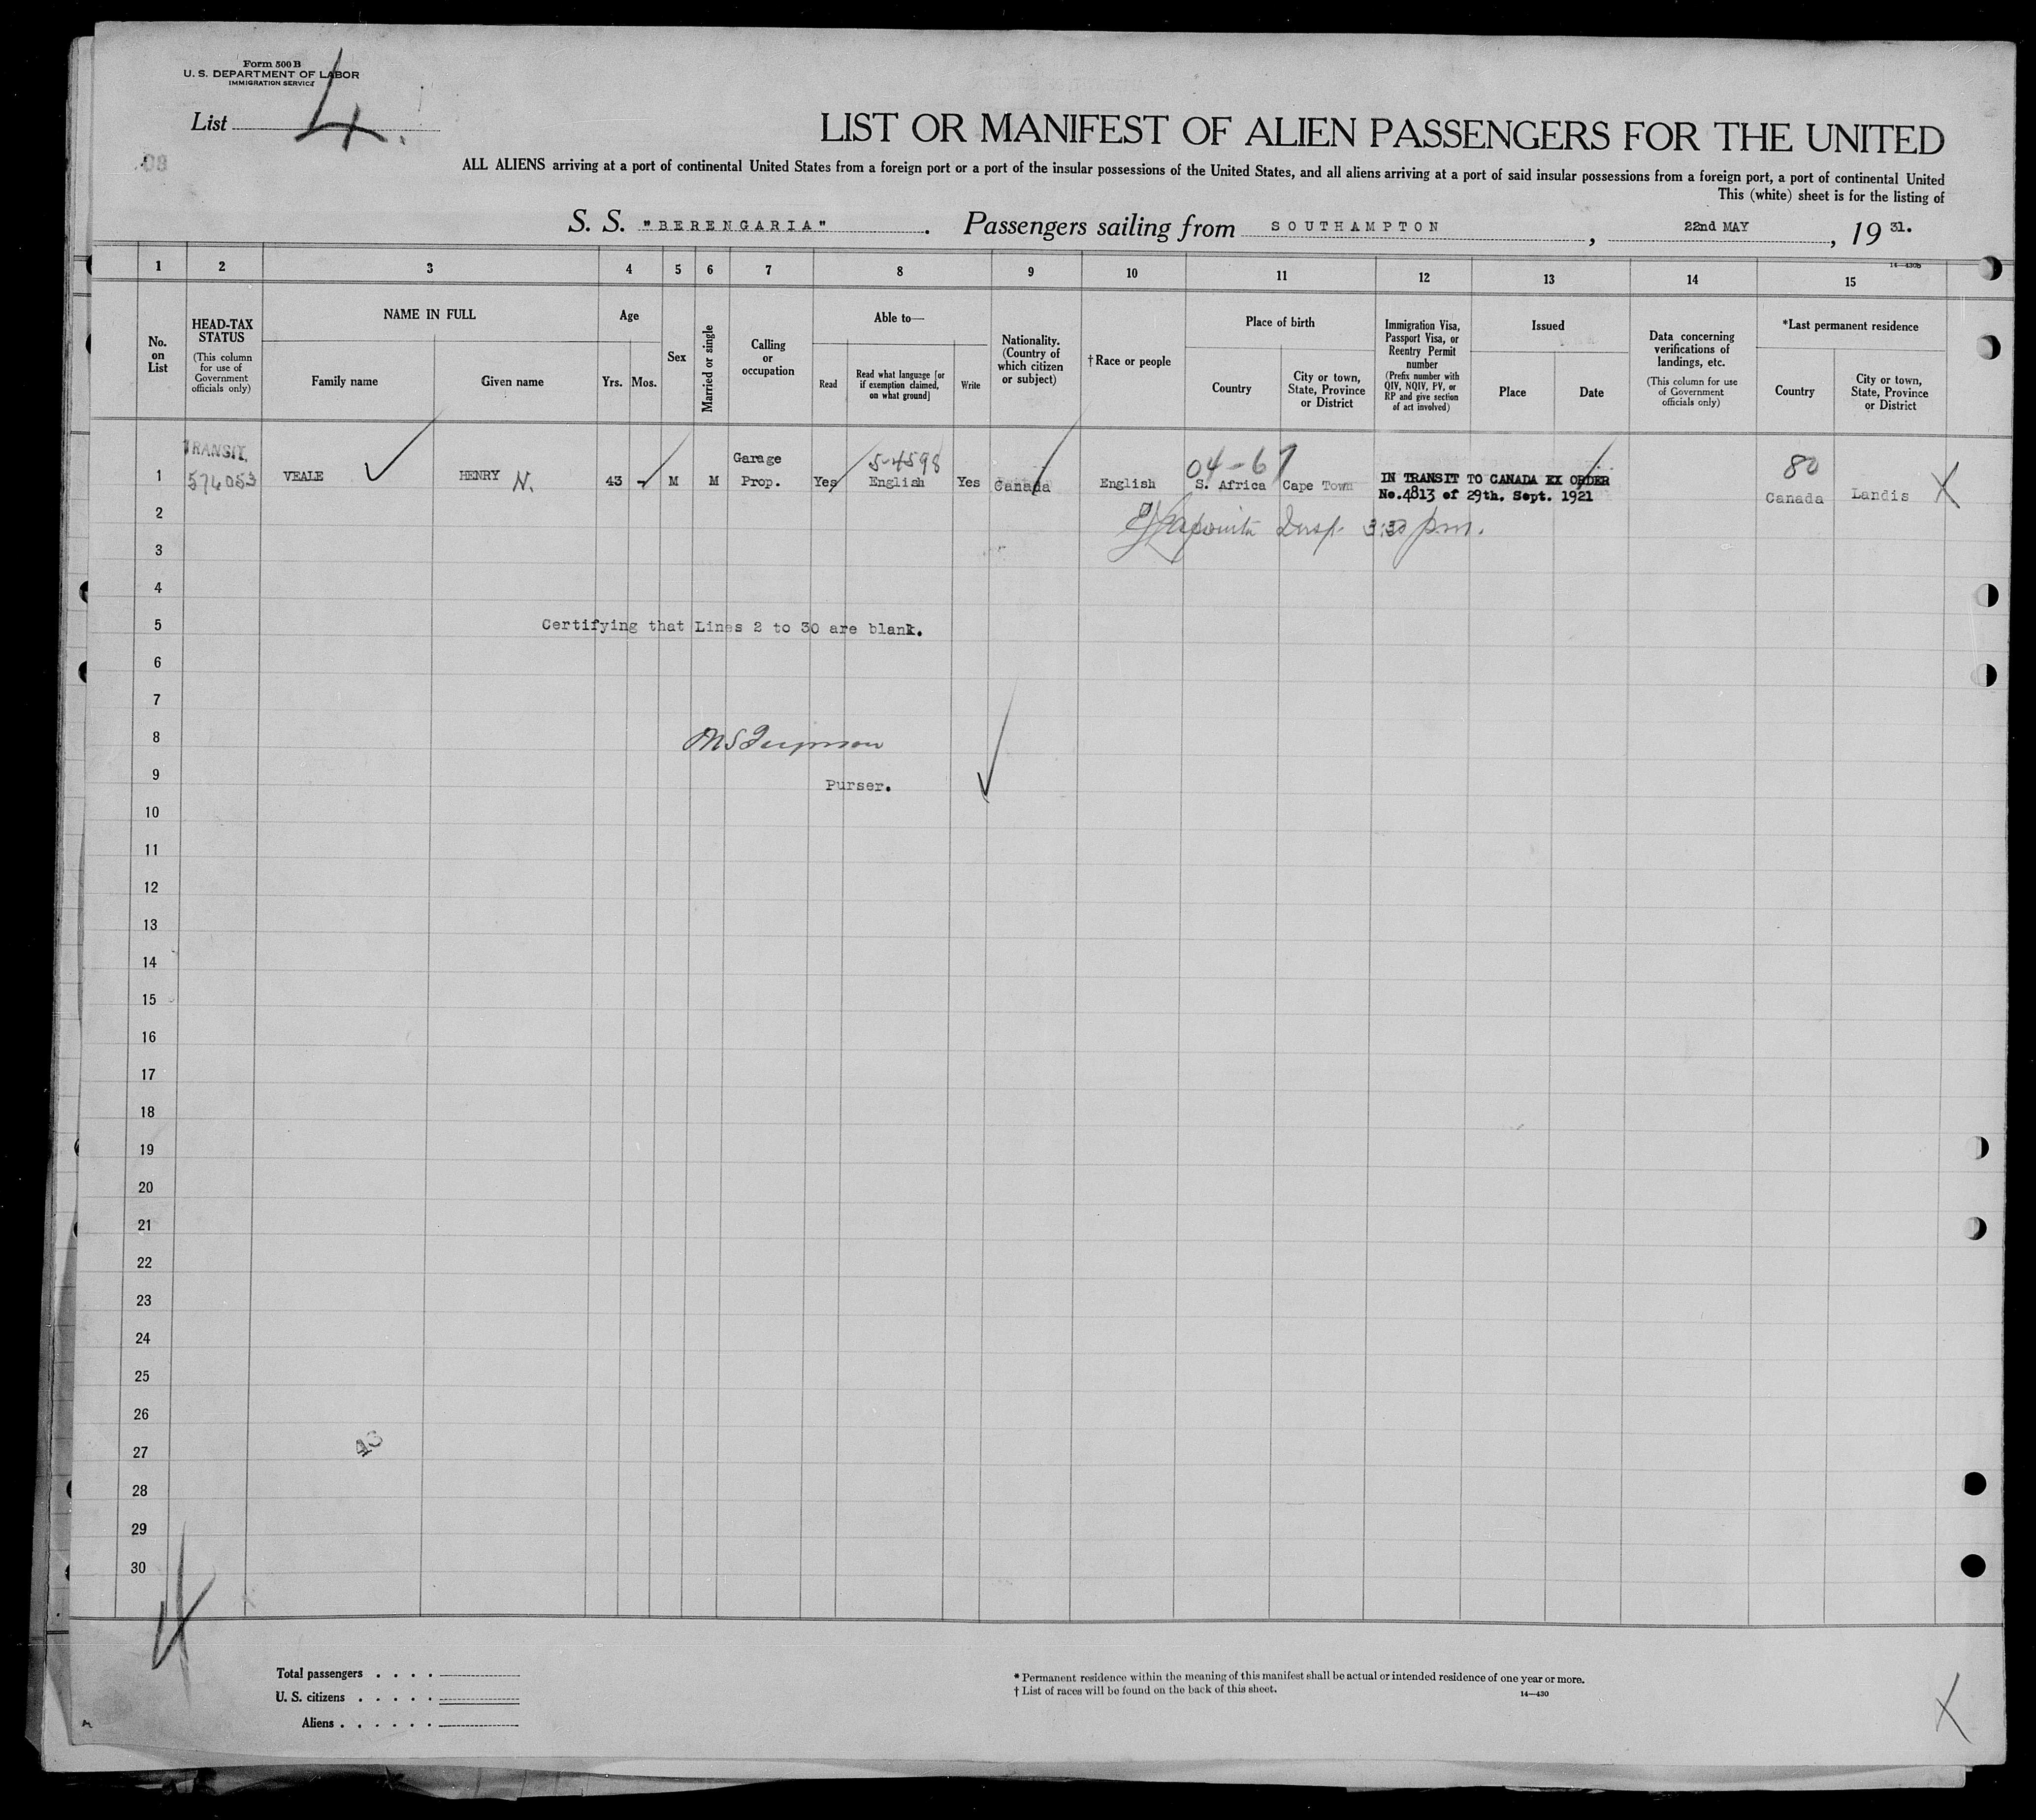 Form 500 B
U. S. DEPARTMENT OF LABOR
IMMIGRATION SERVICE
List 4.
LIST OR MANIFEST OF ALIEN PASSENGERS FOR THE UNITED
ALL ALIENS arriving at a port of continental United States from a foreign port or a port of the insular possessions of the United States, and all aliens arriving at a port of said insular possessions from a foreign port, a port of continental United
This (white) sheet is for the listing of
S. S. "BERENGARIA". Passengers sailing from SOUTHAMPTON, 22nd MAY, 19 31.
14—430B
1 2 3 4 5 6 7 8 9 10 11 12 13 14 15
No. on List
HEAD-TAX STATUS
(This column for use of Government officials only)
NAME IN FULL
Family name
Given name
Age
Yrs. Mos.
Sex
Married or single
Calling or occupation
Able to—
Read
Read what language [or if exemption claimed, on what ground]
Write
Nationality. (Country of which citizen or subject)
†Race or people
Place of birth
Country
City or town, State, Province or District
Immigration Visa, Passport Visa, or Reentry Permit number
(Prefix number with QIV, NQIV, PV, or RP and give section of act involved)
Issued
Place
Date
Data concerning verifications of landings, etc.
(This column for use of Government officials only)
*Last permanent residence
Country
City or town, State, Province or District
TRANSIT
Garage 5-4598 04-67 80
1 574053 VEALE HENRY N. 43 - M M Prop. Yes English Yes Canada English S. Africa Cape Town IN TRANSIT TO CANADA EX ORDER
No.4813 of 29th. Sept. 1921 Canada Landis X
2 Insp. 3:30 pm.
3
4
5 Certifying that Lines 2 to 30 are blank.
6
7
8
9 Purser.
10
11
12
13
14
15
16
17
18
19
20
21
22
23
24
25
26
27 43
28
29
30
Total passengers . . . .
U. S. citizens . . . . .
Aliens . . . . . .
* Permanent residence within the meaning of this manifest shall be actual or intended residence of one year or more.
† List of races will be found on the back of this sheet.
14—430
X